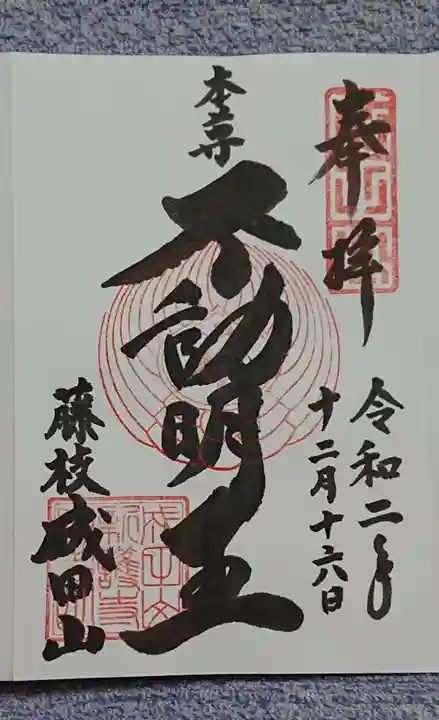 奉拝
令和二年
十二月十六日
本尊
不動明王
藤枝成田山